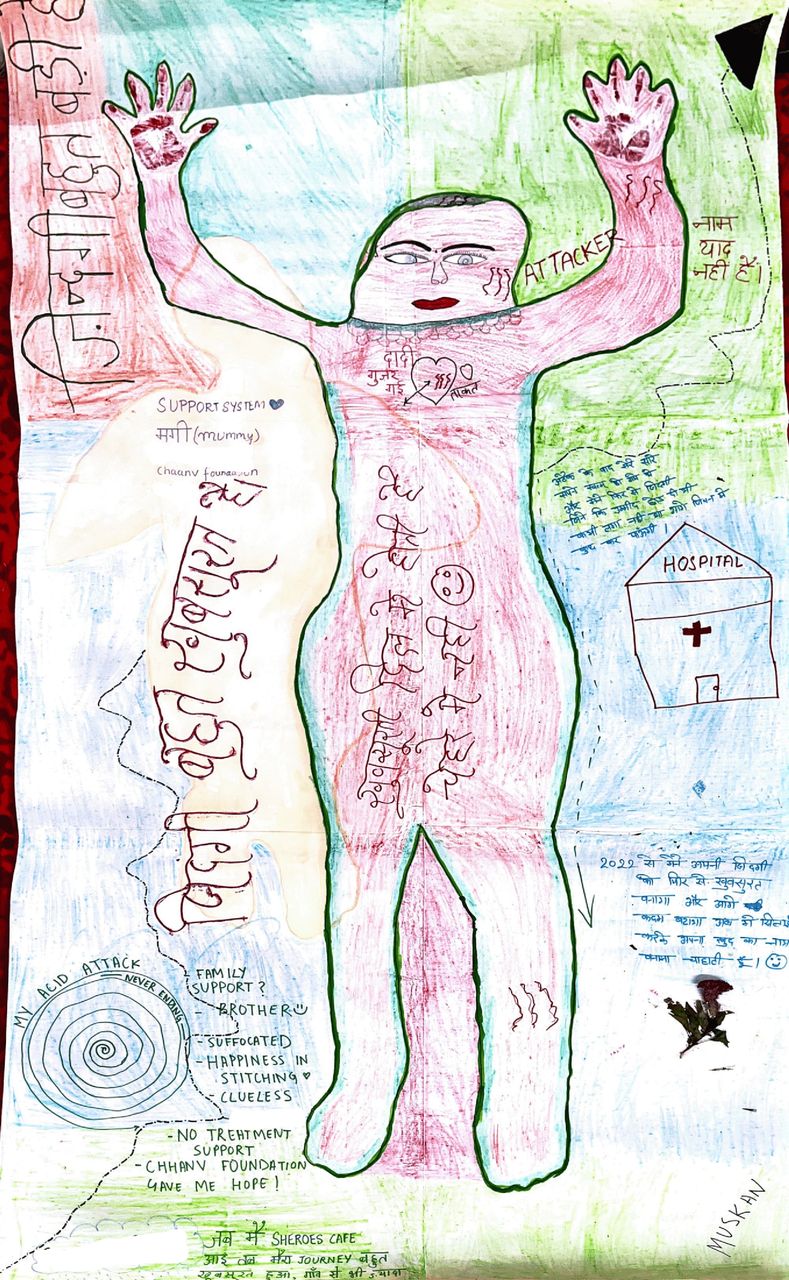 ज़िन्दगी बहुत बड़ी है
ATTACKER
नाम
याद
नहीं हैं।
दादी
गुजर
गई
SUPPORT SYSTEM
मम्मी (mummy)
Chaanv foundation
जिंदगी बहुत खुबसूरत है
खुबसूरती दिल मे होती है
चेहरे मे नही
HOSPITAL
2022 से मैंने अपनी जिंदगी
को फिर से खुबसुरत
बनाया और आगे
कदम बढ़ाया अब मै
करके अपना खुद का नाम
बनाना चाहती हूँ।
MY ACID ATTACK
NEVER ENDING
FAMILY
SUPPORT?
- BROTHER
- SUFFOCATED
- HAPPINESS IN
STITCHING
- CLUELESS
- NO TREHTMENT
SUPPORT
- CHHANV FOUNDATION
GAVE ME HOPE!
जब मैं SHEROES CAFE
आई तब मेरा JOURNEY बहुत
खुबसूरत हुआ, गाँव से भी ज्यादा
MUSKAN